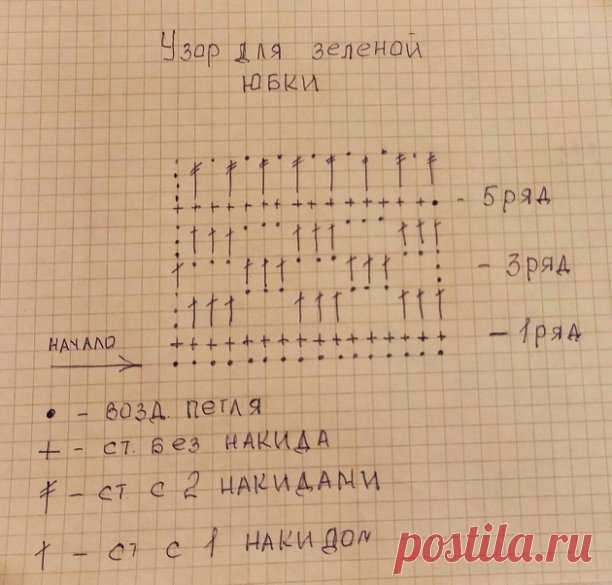 Узор для зеленой
ЮБКИ
- 5 ряд
- 3 ряд
- 1 ряд
НАЧАЛО
• - ВОЗД. ПЕТЛЯ
+ - СТ. БЕЗ НАКИДА
- СТ С 2 НАКИДАМИ
† - СТ С 1 НАКИДОМ
postila.ru